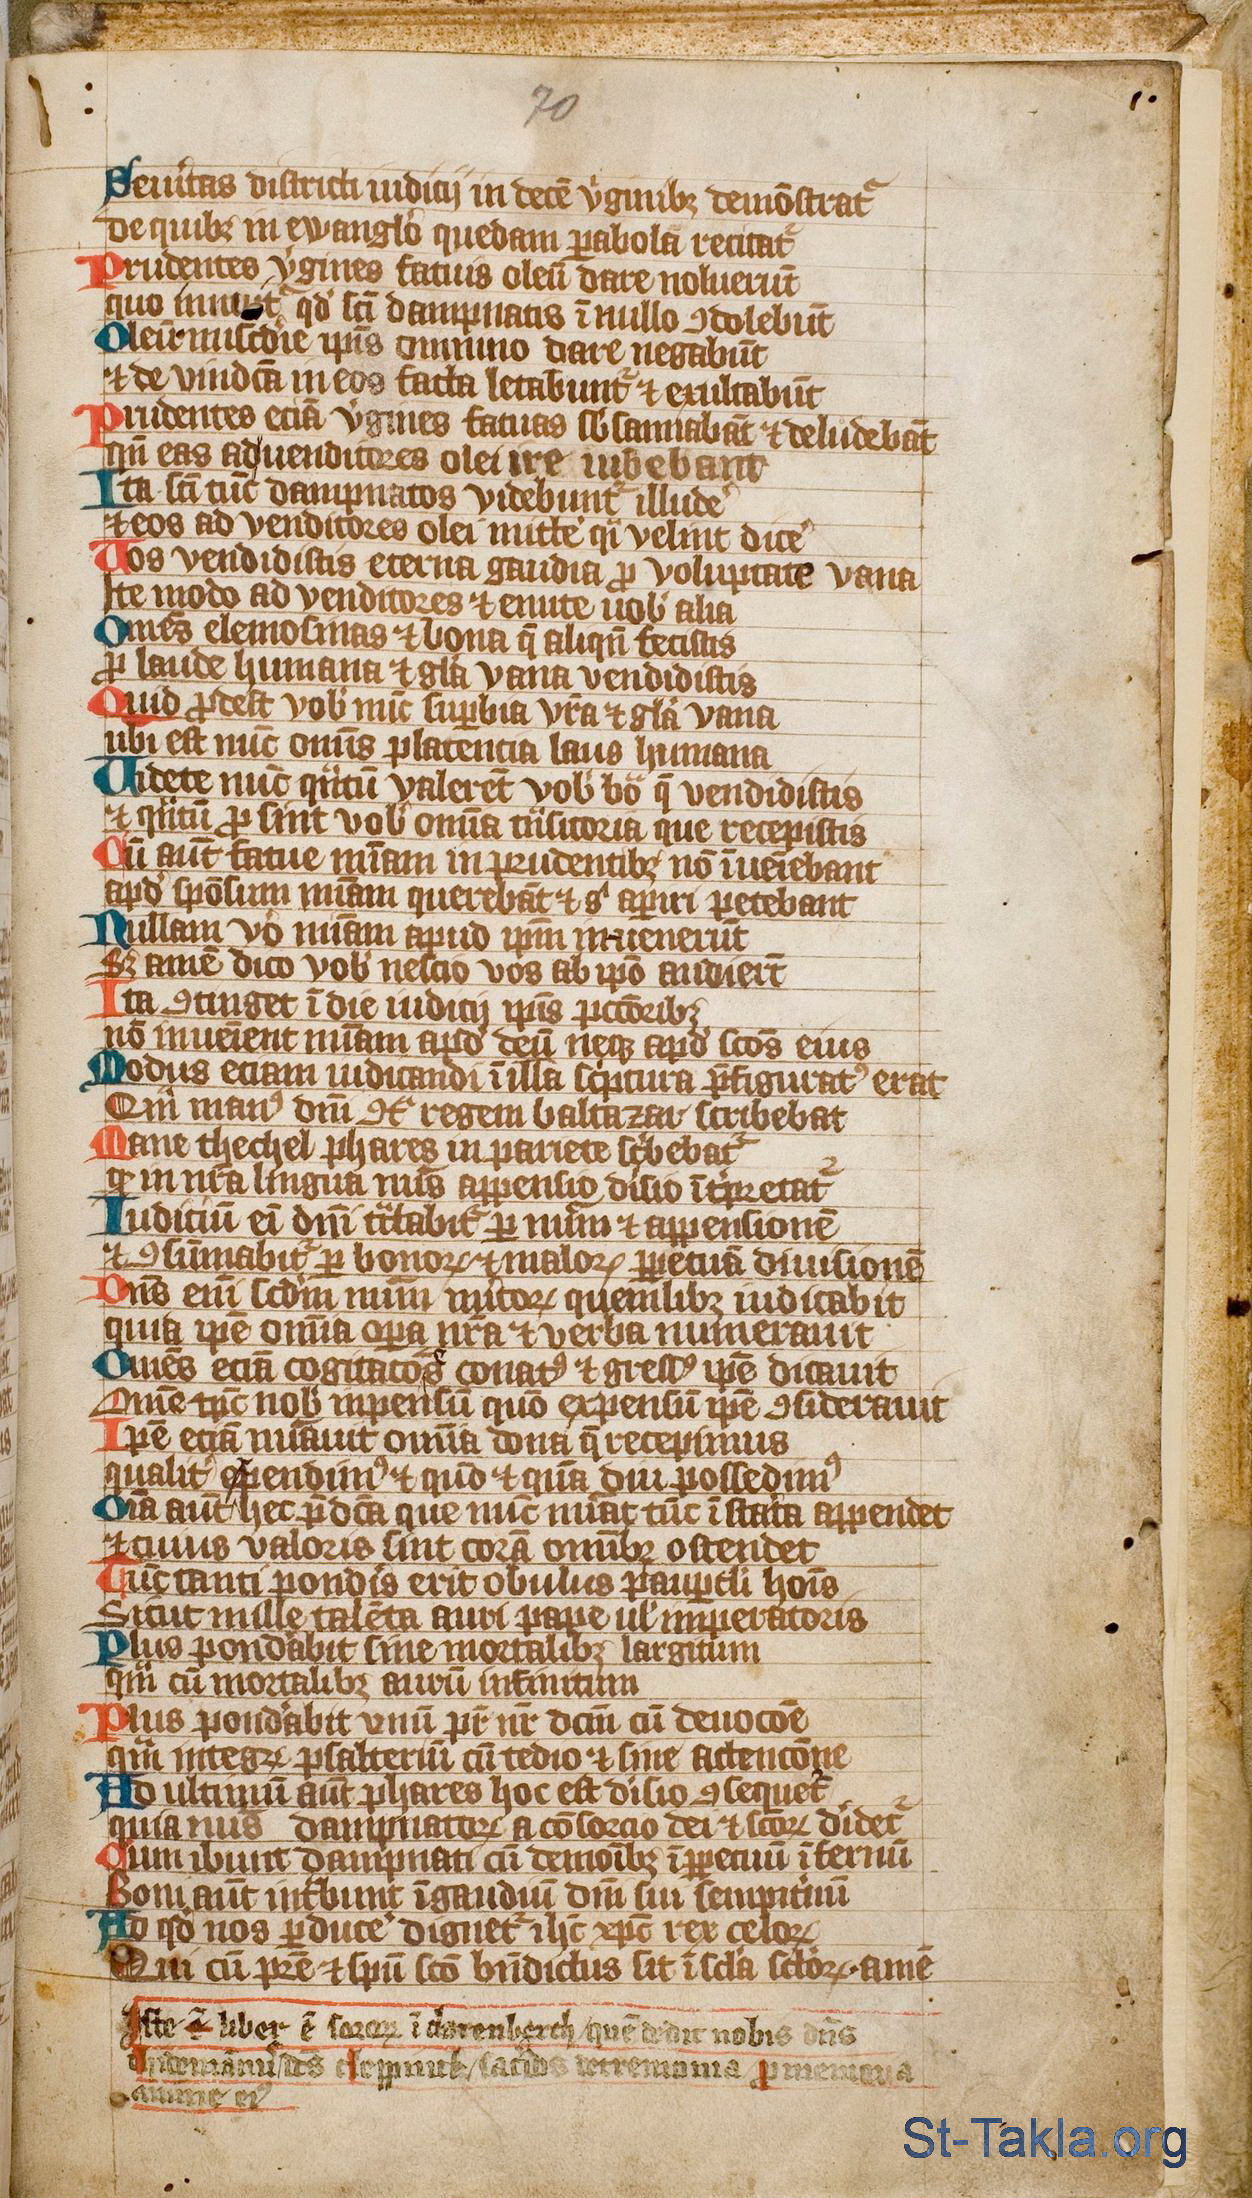 70
Seu'itas districti iudicij in decē v'ginibꝫ demōstrat᷑
de quibꝫ in ewanglo quedam ꝑabola recitat᷑
Prudentes v'gines fatuis oleū dare noluerūt
quo innuit᷑ qd' sc̄i dampnatis ī nullo ꝯdolebūt
Oleū misc'die ip̄is omnino dare negabūt
⁊ de vindc̄a in eos facta letabunt᷑ ⁊ exultabūt
Prudentes eciā v'gines fatuas sb'sannabāt ⁊ deludebāt
qn̄ eas ad uenditores olei ire iubebant
Ita sc̄i tūc dampnatos videbunt᷑ illude'
⁊ eos ad venditores olei mitte' q̄i velint dice'
Uos vendidistis eterna gaudia ꝓ voluptate vana
Ite modo ad venditores ⁊ emite uob' alia
Om̄es elemosinas ⁊ bona q̄ aliqn̄ fecistis
ꝓ laude humana ⁊ gl̄a vana vendidistis
Quid ꝓdest vob' nūc suꝑbia vr̄a ⁊ gl̄a vana
ubi est nūc om̄is placencia laus humana
Uidete nūc qͣntū valerēt vob' boͣ q̄ vendidistis
⁊ qͣntū ꝓ sint vob' om̄ia tͣnsitoria que recepistis
Cū aūt fatue mīam in prudentibꝫ nō īueiebant
apd' spōsum mīam querebāt ⁊ s' aperiri petebant
Nullam vo' mīam apud ip̄m inuenerūt
Sꝫ amē dico vob' nescio vos ab ip̄o audierūt
Ita ꝯtinget ī die iudicij ip̄is pcc̄oribꝫ
nō inueient mīam apd' deū neqꝫ apd' sc̄os eius
Modus eciam iudicandi ī illa scͥptura p̄figuratꝰ erat
Qn̄ manꝰ dn̄i ꝯt' regem baltazar scribebat
Mane thechel phares in pariete scͥbebat᷑
qꝫ in nr̄a lingua nūs appensio diuisio īt'pretat᷑
Iudiciū ei dn̄i tͣctabit᷑ ꝑ num̄ ⁊ appensionē
⁊ ꝯsūmabit᷑ ꝑ bonoꝝ ⁊ maloꝝ ꝑpetuā diuisionē
Dn̄s eni scdm num̄ m'itoꝝ quemlibꝫ iudicabit
quia ip̄e om̄ia oꝑa nr̄a ⁊ verba numerauit
Om̄es eciā cogitac̄oēs conatꝰ ⁊ gressꝰ ip̄e dictauit
Om̄e tp̄c nob' inpensū quo expensū ip̄e ꝯsiderauit
Ip̄e eciā nūauit om̄ia dona q̄ recepimus
qualit' expendimꝰ ⁊ quo ⁊ quā diu possedimꝰ
Oīa aūt hec p̄dc̄a que nūc nūat tūc ī stat'a appendet
⁊ cuius valoris sint corā om̄ibꝫ ostendet
Tūc tanti ponderis erit obulus pauꝑcli hoīs
Sicut mille talēta auri pape ul' imperatoris
Plus pond'abit sine mortalibꝫ largitum
qͣm cū mortalibꝫ aurū infinitum
Plus pond'abit vnū pr̄ nr̄ dc̄m cū deuoc̄oē
qͣm integꝝ psalteriū cū tedio ⁊ sine actencōne
Ad ultimū aūt phares hoc est diuisio ꝯsequet᷑
quia nūs dampnatoꝝ a cōsorcio dei ⁊ sc̄oꝝ d'idet᷑
Cum ibunt dampnati cū demoībꝫ ī ꝑpetuū īfernū
Boni aūt int'bunt ī gaudiū dn̄i sui sempit'nū
Ad qd' nos ꝑduce' dignet᷑ ih̄c xp̄c rex celoꝝ
Qui cū pr̄e ⁊ spū sc̄o bn̄dictus sit ī scl'a scl'oꝝ amē
Iste liber ē soroꝝ ī clarenberch quē dedit nobis dn̄s
pro memoria
anime eiꝰ
St-Takla.org